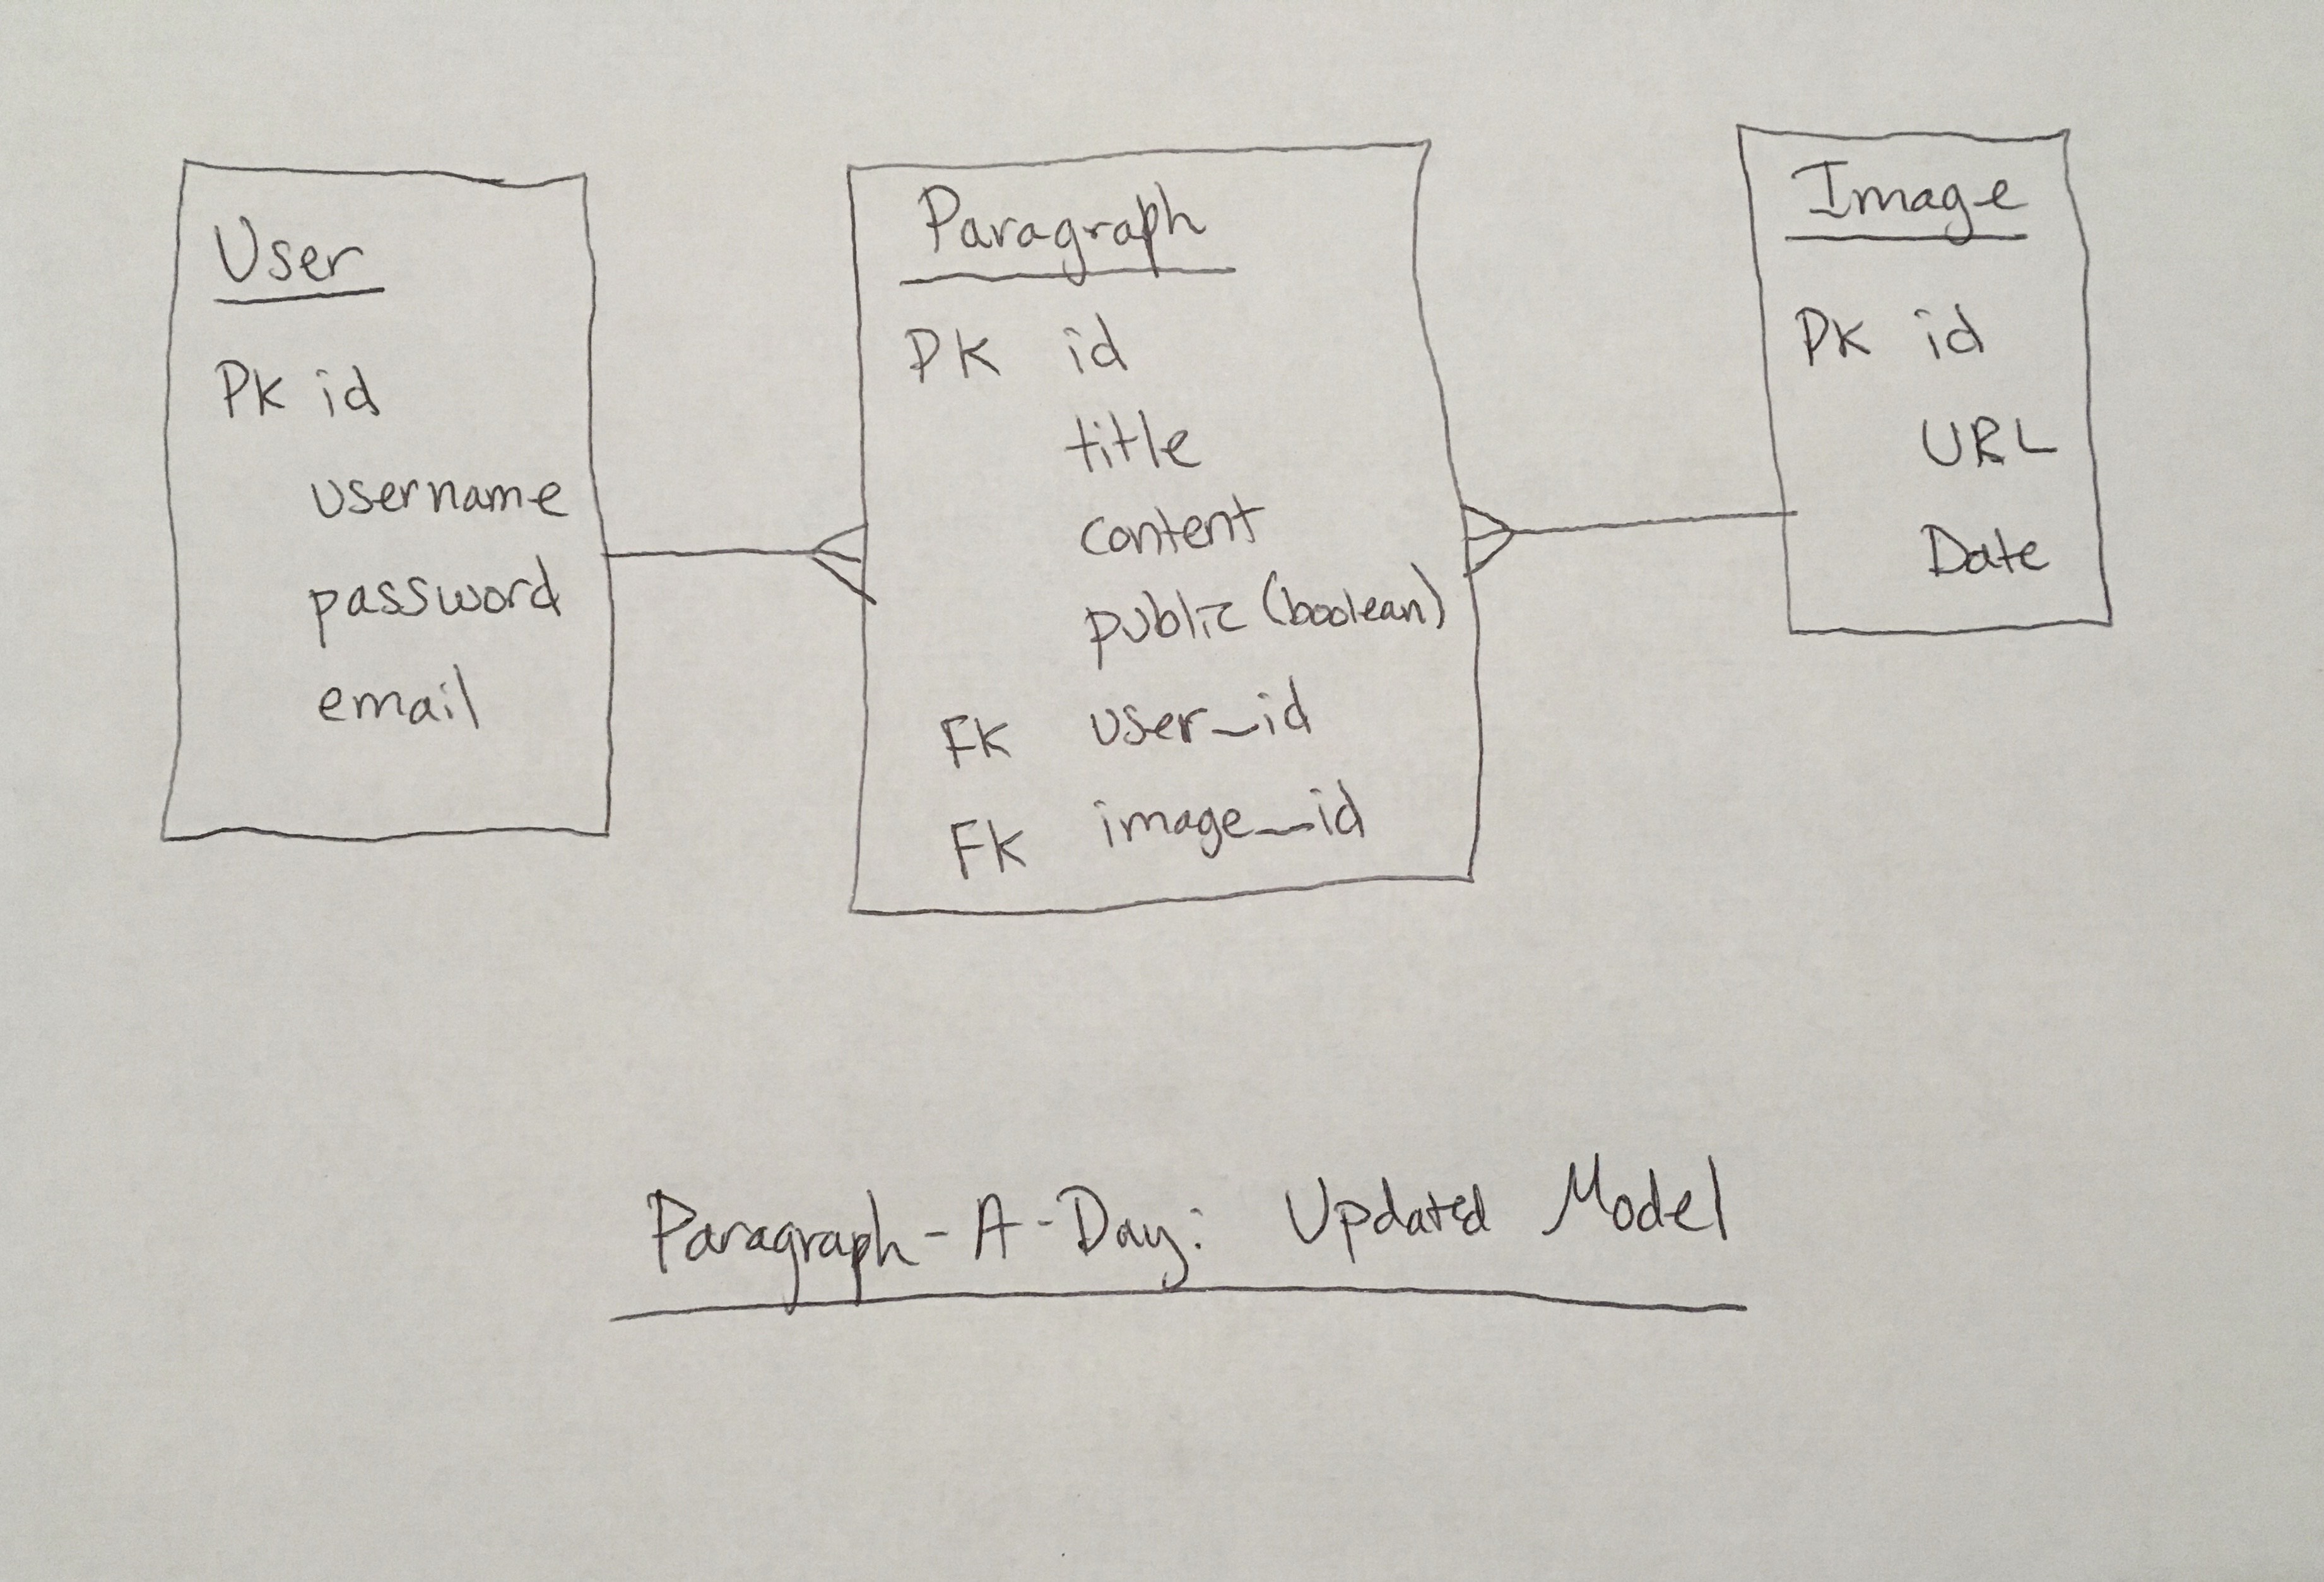 User
PK id
username
password
email
Paragraph
PK id
title
content
public (boolean)
FK user_id
FK image_id
Image
PK id
URL
Date
Paragraph-A-Day: Updated Model